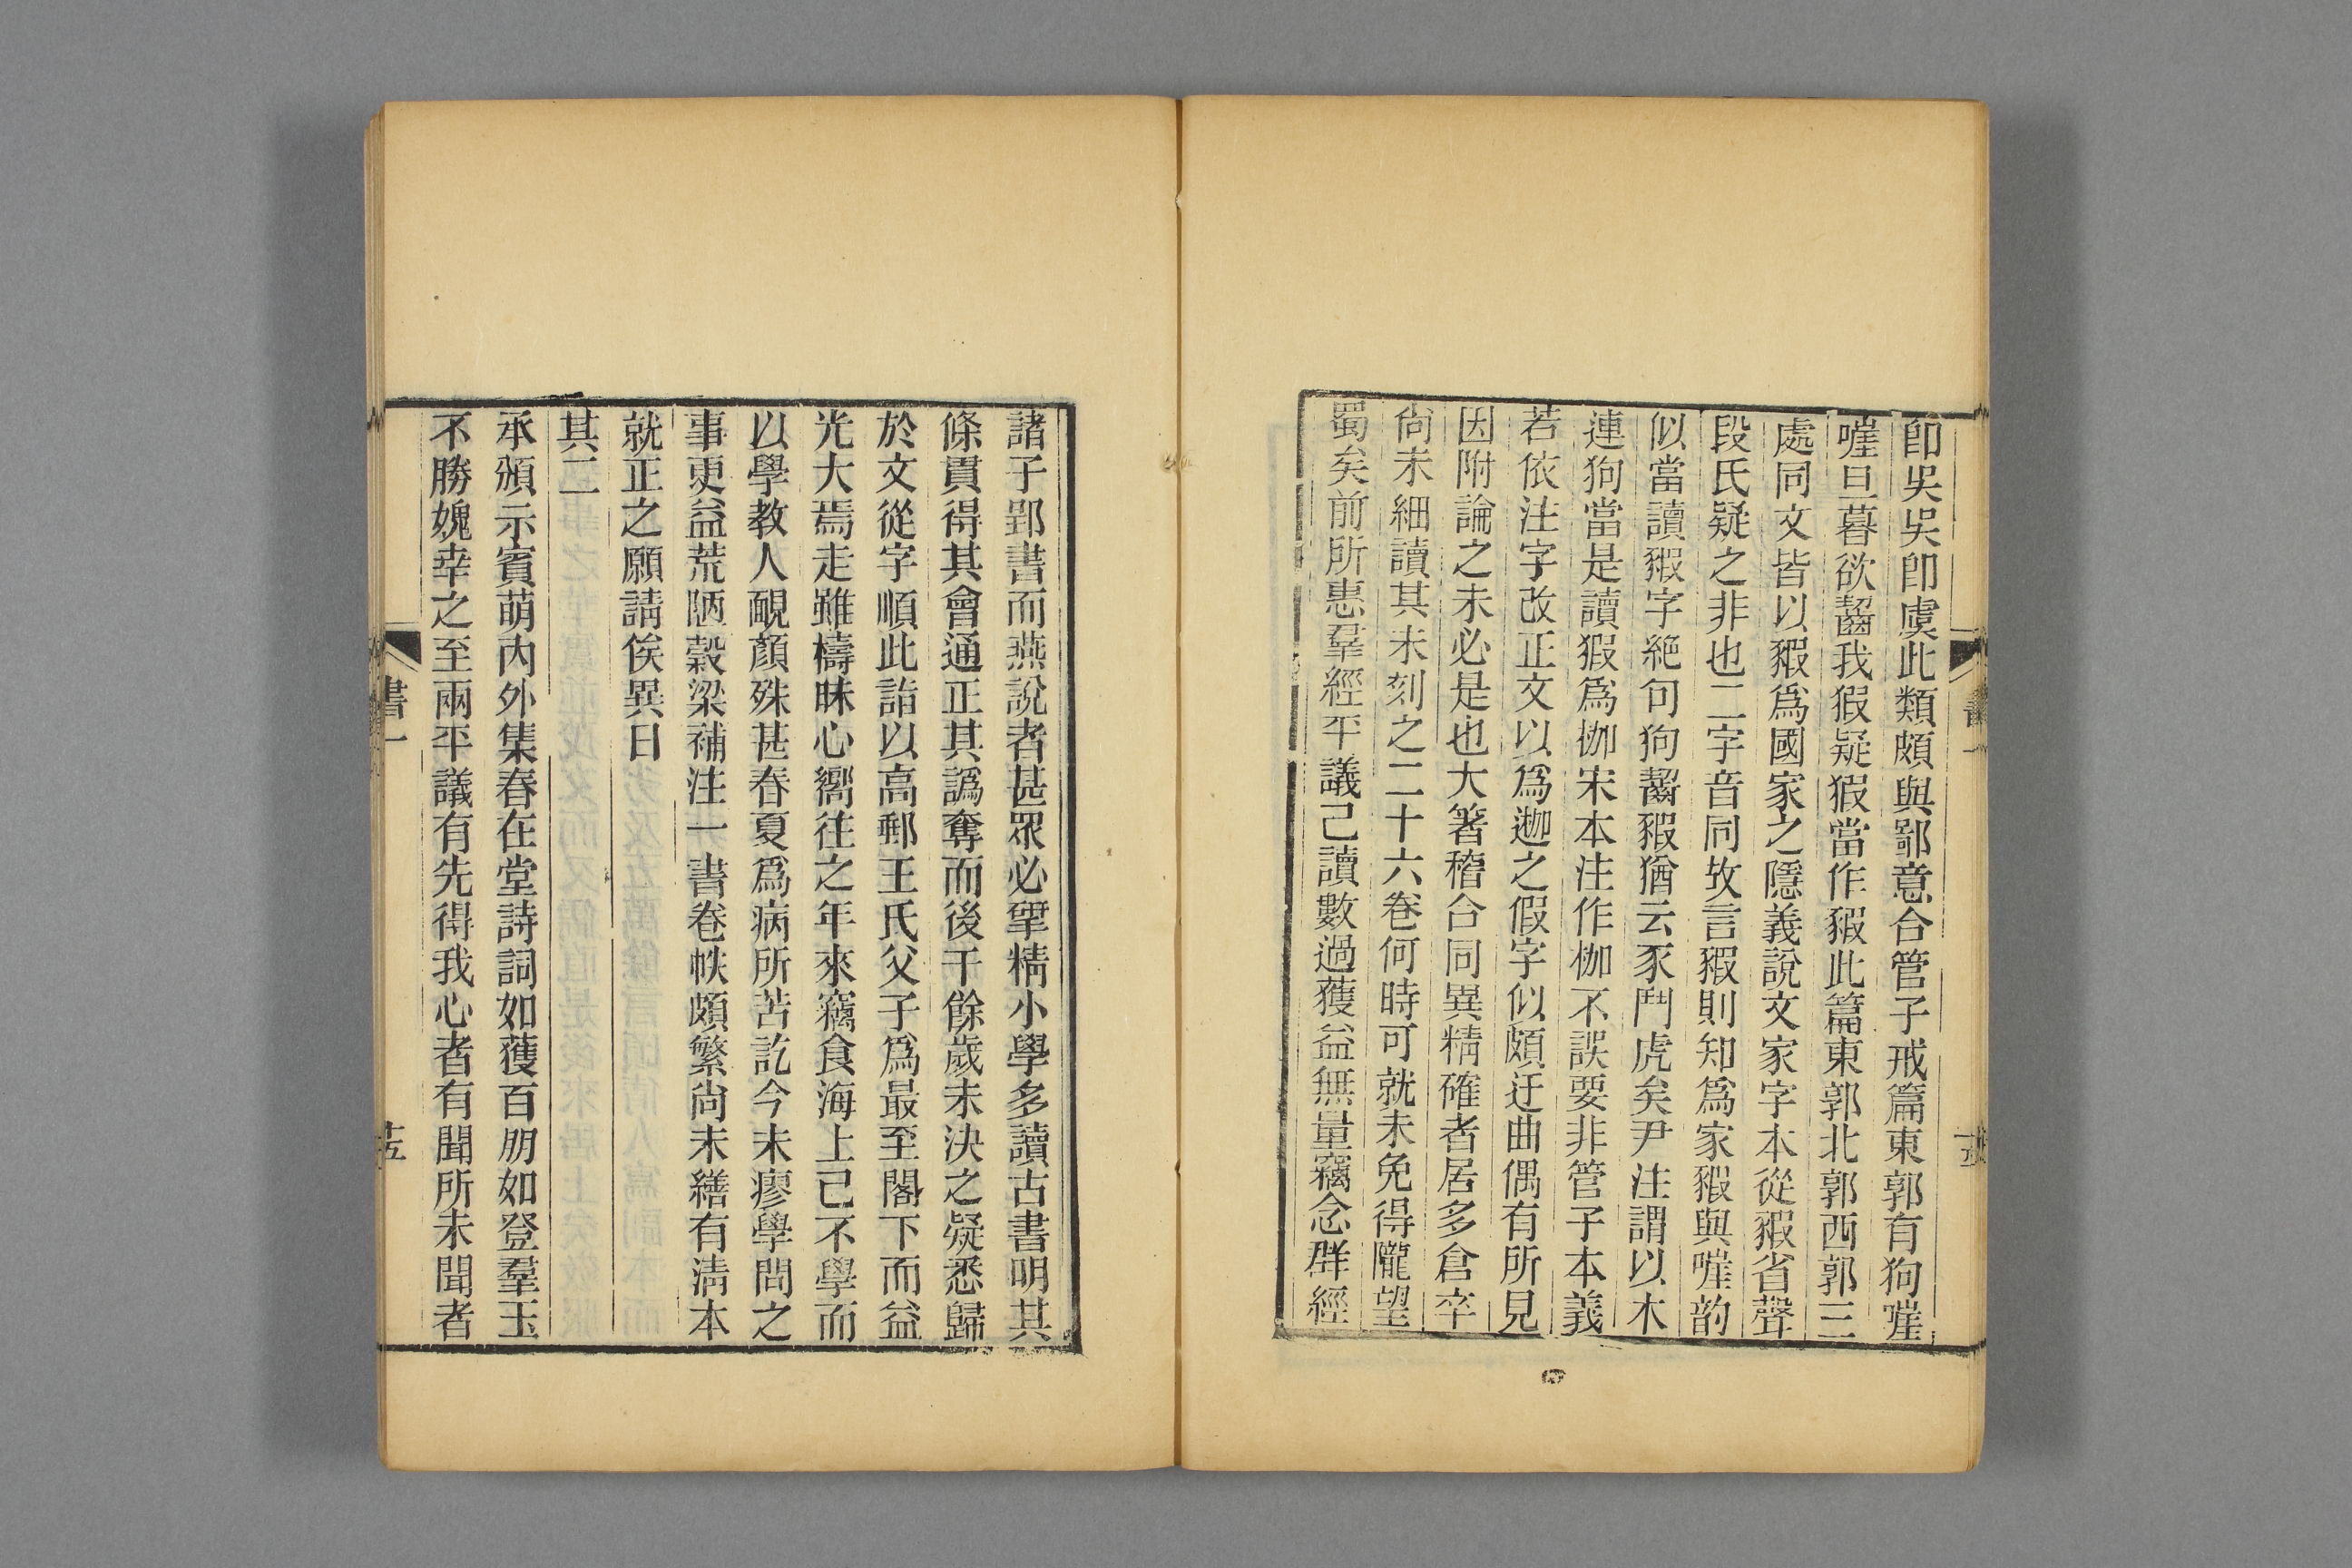 卽吳吳卽虞此類頗與鄙意合管子戒篇東郭有狗嘊
嘊旦暮欲齧我猳疑猳當作豭此篇東郭北郭西郭三
處同文皆以豭爲國家之隱義說文家字本從豭省聲
段氏疑之非也二字音同故言豭則知爲家豭與嘊韵
似當讀豭字絶句狗齧豭猶云豕鬥虎矣尹注謂以木
連狗當是讀猳爲枷宋本注作枷不誤要非管子本義
若依注字改正文以爲迦之假字似頗迂曲偶有所見
因附論之未必是也大箸稽合同異精確者居多倉卒
尙未細讀其未刻之二十六卷何時可就未免得隴望
蜀矣前所惠羣經平議己讀數過獲益無量竊念群經
諸子郢書而燕說者甚眾必揅精小學多讀古書明其
條貫得其會通正其譌奪而後千餘歲未決之疑悉歸
於文從字順此詣以高郵王氏父子爲最至閣下而益
光大焉走雖檮昧心嚮往之年來竊食海上己不學而
以學教人靦顏殊甚春夏爲病所苦訖今未瘳學問之
事更益荒陋穀梁補注一書卷帙頗繁尙未繕有清本
就正之願請俟異日
其二
承頒示賓萌內外集春在堂詩詞如獲百朋如登羣玉
不勝媿幸之至兩平議有先得我心者有聞所未聞者
書一